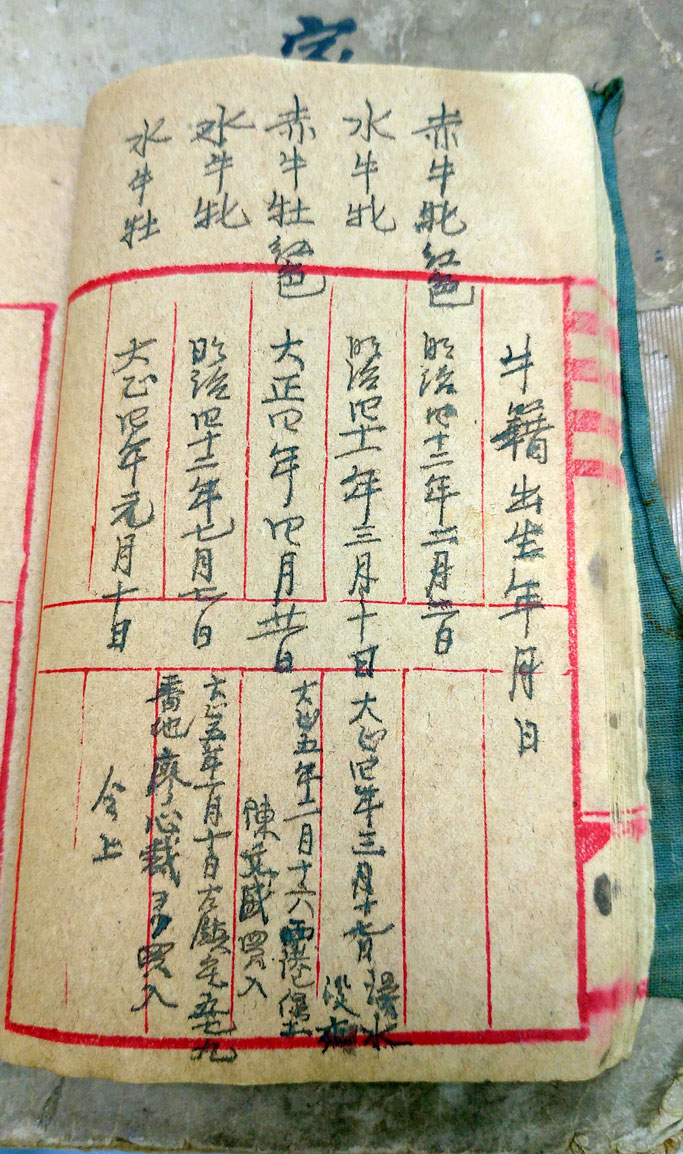 牛籍出生年月日
赤牛牝紅色
明治四十二年二月三日
水牛牝
明治四十一年三月十日
大正四年三月十七日
淡水
赤牛牡紅色
大正四年四月廿一日
大正五年二月十六
陳文盛買入
水牛牝
明治四十二年七月七日
大正五年一月十日
五七九
番地廖心栽ヨリ買入
水牛牡
大正四年元月十日
仝上